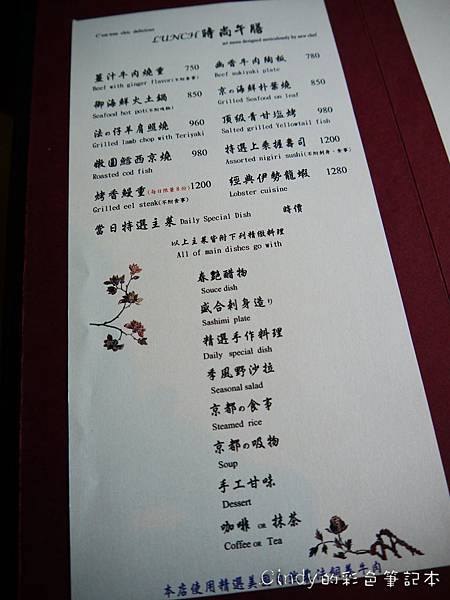 C'est tout chic delicious
LUNCH 時尚午膳
set menu designed meticulously by new chef
薑汁牛肉燒重 750
Beef with ginger flavor(不附食事)
御海鮮火土鍋 850
Seafood hot pot(不附吸物)
法の仔羊肩照燒 960
Grilled lamb chop with Teriyaki
嫩圓鱈西京燒 980
Roasted cod fish
烤香鰻重(每日限量8份)1200
Grilled eel steak(不附食事)
幽香牛肉陶板 780
Beef sukiyaki plate
京の海鮮朴葉燒 850
Grilled Seafood on leaf
頂級青甘塩烤 980
Salted grilled Yellowtail fish
特選上乘握壽司 1200
Assorted nigiri sushi(不附刺身、食事)
經典伊勢龍蝦 1280
Lobster cuisine
當日特選主菜 Daily Special Dish 時價
以上主菜皆附下列精緻料理
All of main dishes go with
春艷醋物
Souce dish
盛合刺身造り
Sashimi plate
精選手作料理
Daily special dish
季風野沙拉
Seasonal salad
京都の食事
Steamed rice
京都の吸物
Soup
手工甘味
Dessert
咖啡 OR 抹茶
Coffee OR Tea
本店使用精選美
牛肉
Cindy的彩色筆記本